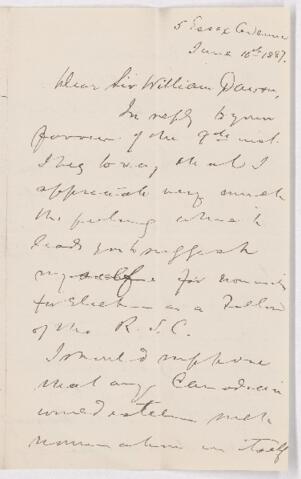 5 Essex Avenue
June 10th 1887.
Dear Sir William Dawson,
In reply to your
favour of the 9th inst.
I beg to say that I
appreciate very much
the feeling which
leads you to suggest
my name for
for Election as a Fellow
of the R. S. C.
I should suppose
that any Canadian
would esteem such
nomination in itself